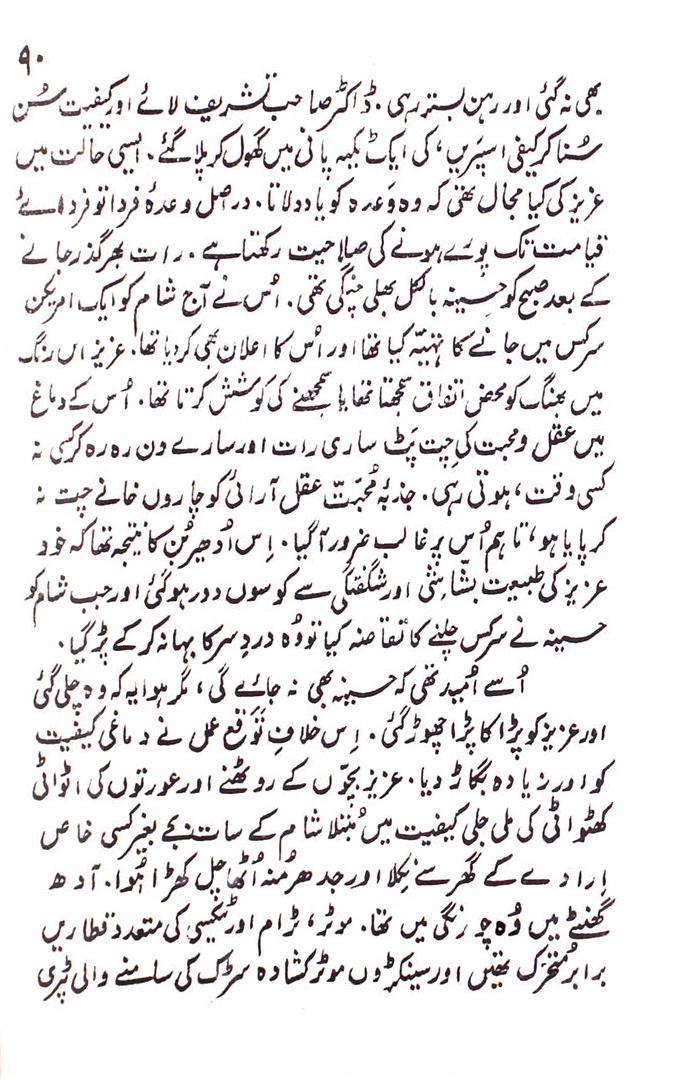 ۹۰
بھی نہ گئی اور رہن بستر رہی ۔ ڈاکٹر صاحب تشریف لائے اور کیفیت سُن
سُنا کر کیفی اسپرین ، کی ایک ٹکیہ پانی میں گھول کر پلا گئے ۔ ایسی حالت میں
عزیز کی کیا مجال تھی کہ وہ وَعدہ کو یاد دلاتا ۔ دراصل وعدۂ فردا تو فردائے
قیامت تک پورے ہونے کی صلاحیت رکھتا ہے ۔ رات بھر گذر جانے
کے بعد صبح کو حسینہ بالکل بھلی چنگی تھی ۔ اُس نے آج شام کو ایک امریکن
سرکس میں جانے کا تہیّہ کیا تھا اور اُس کا اعلان بھی کر دیا تھا ۔ عزیز اس رنگ
میں بھنگ کو محض اتفاق سمجھتا تھا یا سمجھنے کی کوشش کرتا تھا ۔ اُس کے دماغ
میں عقل و محبت کی چت پَٹ ساری رات اور سارے دن رہ رہ کر کسی نہ
کسی وقت ، ہوتی رہی ۔ جذبۂ مُحبّت عقل آرائی کو چاروں خانے چت نہ
کر پایا ہو ، تاہم اُس پر غالب ضرور آ گیا ۔ اِس اُدھیڑ بُن کا نتیجہ تھا کہ خود
عزیز کی طبیعت بشّاشی اور شگفتگی سے کوسوں دور ہو گئی اور جب شام کو
حسینہ نے سرکس چلنے کا تقاضہ کیا تو وُہ دردِ سر کا بہانہ کر کے پڑ گیا ۔
اُسے اُمید تھی کہ حسینہ بھی نہ جائے گی ، مگر ہوا یہ کہ وہ چلی گئی
اور عزیز کو پڑا کا پڑا چھوڑ گئی ۔ اِس خلافِ تَوقع عمل نے دماغی کیفیت
کو اور زیادہ بگاڑ دیا ۔ عزیز بچّوں کے روٹھنے اور عورتوں کی اٹواٹی
کھٹواٹی کی ملی جلی کیفیت میں مُبتلا شام کے سات بجے بغیر کسی خاص
اِرادے کے گھر سے نِکلا اور جدھر مُنہ اُٹھا چل کھڑا ہُوا ۔ آدھ
گھنٹے میں وُہ چورنگی میں تھا ۔ موٹر ، ٹرام اور ٹیکسی کی متعدد قطاریں
برابر مُتحرّک تھیں اور سینکڑوں موٹر کشادہ سڑک کی سامنے والی پٹری